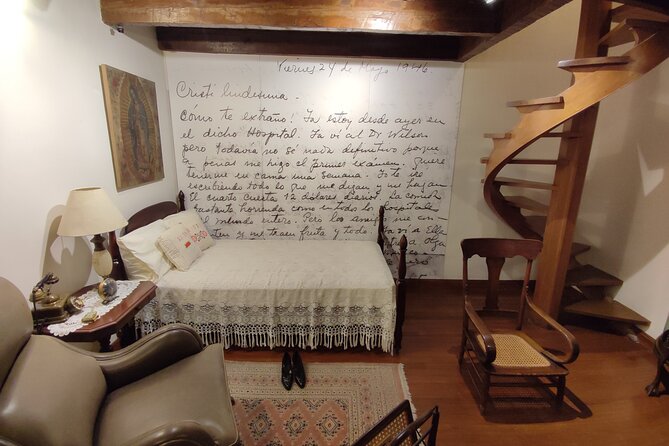 Viernes 24 de Mayo 1946
Cristi lindisima.
Cómo te extraño! Ya estoy desde ayer en
el dicho Hospital. Ya ví al Dr Wilson
pero todavia no se nada definitivo porque
a penas me hizo el primer exámen. Quiere
tenerme en cama una semana. Yo te iré
escribiendo todo lo que me digan y me hagan
El cuarto cuesta 12 dolares diarios La comida
bastante horrenda como en todos los hospitales
del mundo entero. Pero los amigos me con
y me traen fruta y todo. Ya ví a Ella
Olga